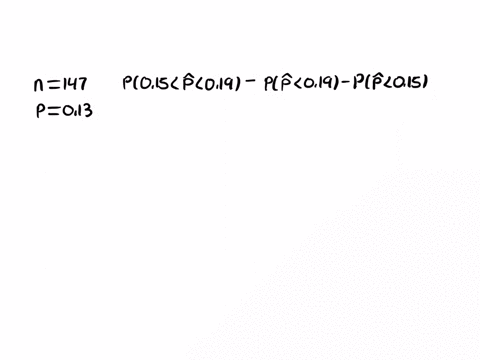 n=147 P(0.15<p̂<0.19) - P(p̂<0.19)-P(p̂<0.15)
P=0.13